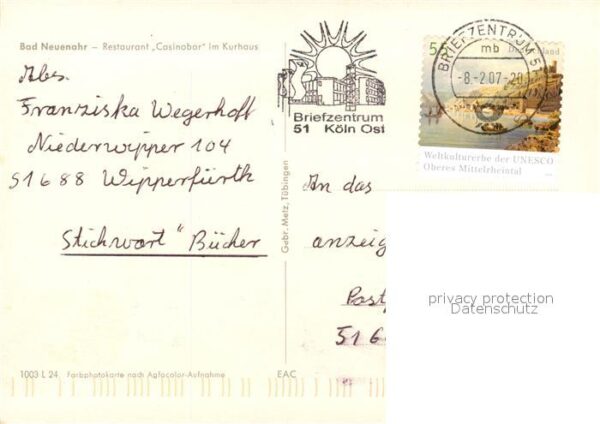 Bad Neuenahr — Restaurant „Casinobar" im Kurhaus
Abs.
Franziska Wegerhoff
Niederwipper 104
51688 Wipperfürth
Stichwort "Bücher
1003 L 24 Farbphotokarte nach Agfacolor-Aufnahme
Gebr. Metz, Tübingen
EAC
Briefzentrum
51 Köln Ost
BRIEFZENTRUM 5
mb
-8.-2.07-20
55 Deutschland
Weltkulturerbe der UNESCO
Oberes Mittelrheintal
An das
anzeig
Post
516
privacy protection
Datenschutz